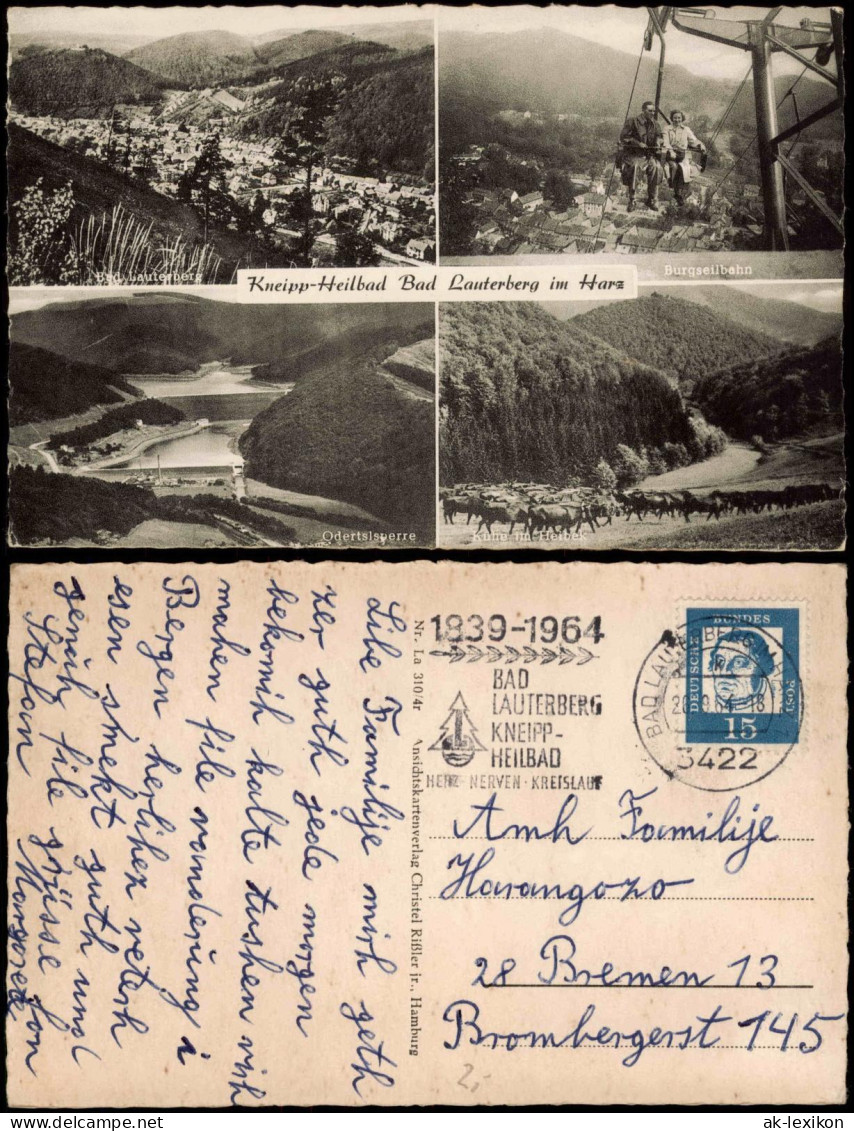 Bad Lauterberg
Burgseilbahn
Kneipp-Heilbad Bad Lauterberg im Harz
Odertalsperre
Kühe im Heibek
Libe Familije mirh geth
zer guth jede morgen
bekomih kalte tushen wih
mahen file vanderung i
Bergen herliher veterh
esen smekt guth und
file grüsse fon
Stefan Margaret
Nr. La 310/4r Ansichtskartenverlag Christel Rißler jr., Hamburg
1839-1964
BAD
LAUTERBERG
KNEIPP-
HEILBAD
HERZ · NERVEN · KREISLAUF
BAD LAUTERBERG
.9.64-18
3422
DEUTSCHE
BUNDES
POST
15
Amh Familije
Harangozo
28 Bremen 13
Brombergerst 145
2,-
ak-lexikon.com